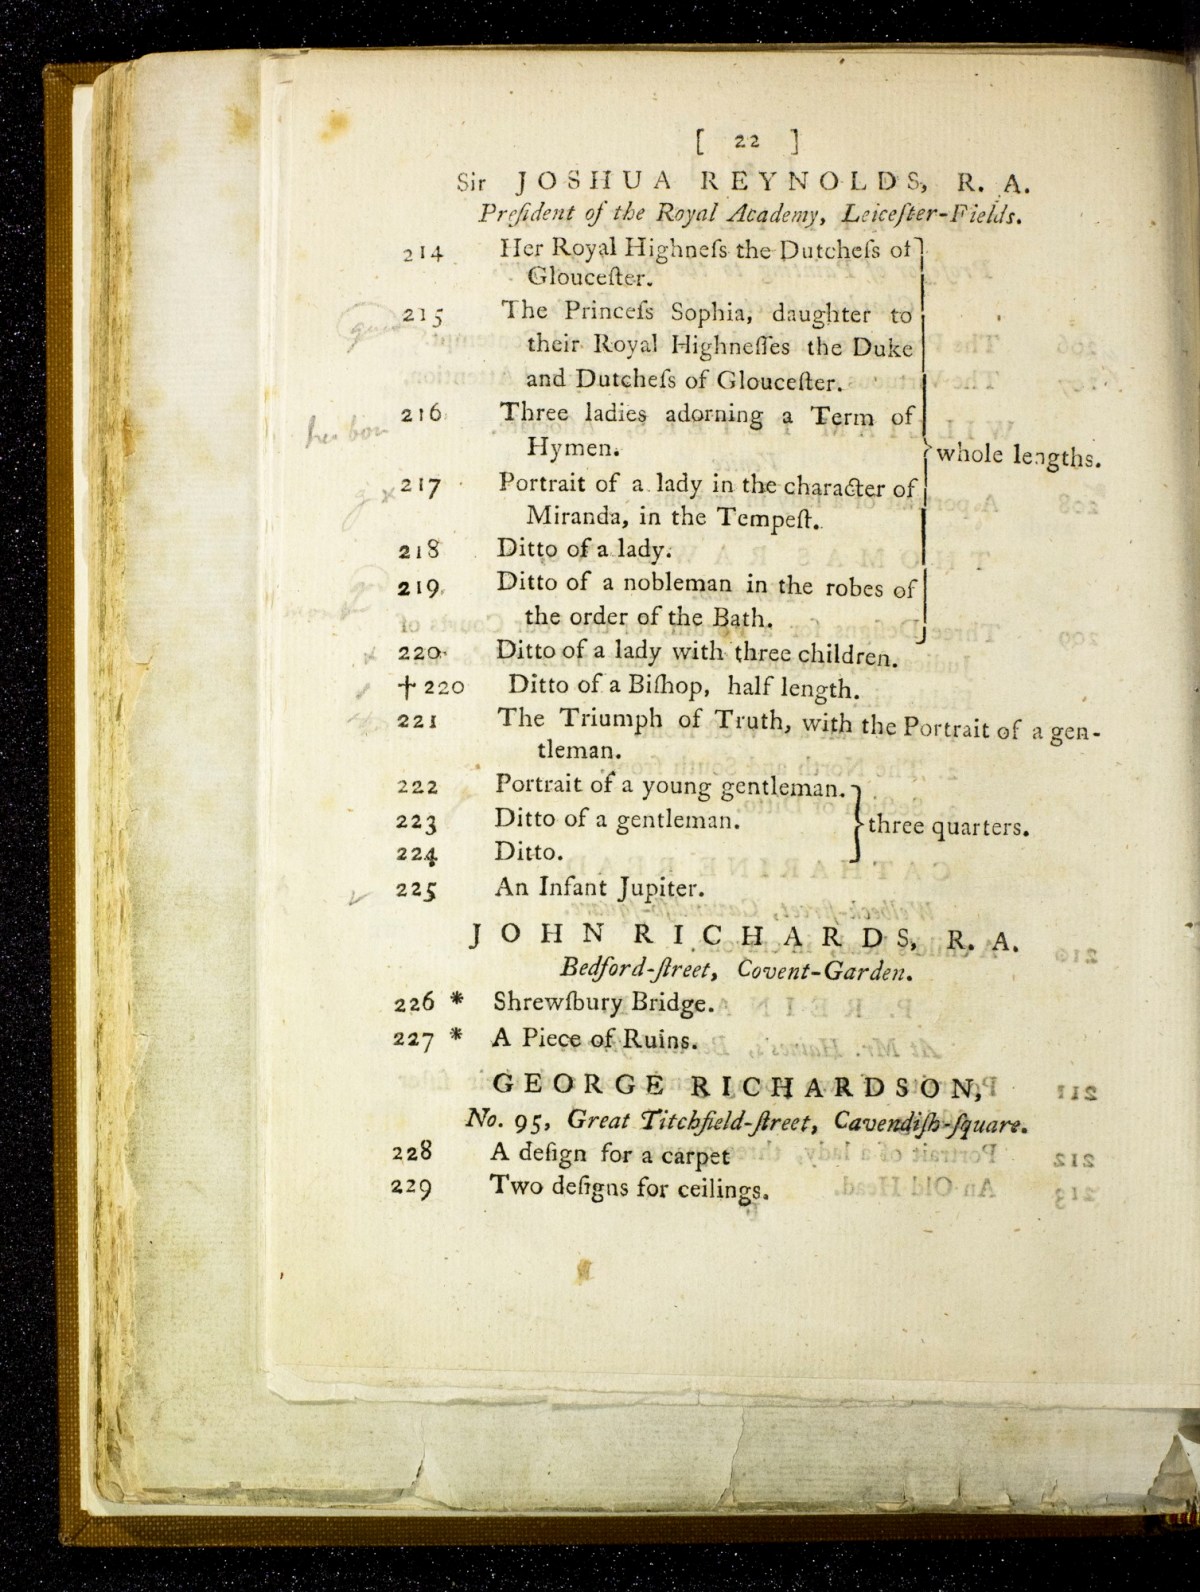 [ 22 ]
Sir JOSHUA REYNOLDS, R. A.
Preſident of the Royal Academy, Leiceſter-Fields.
214 Her Royal Highneſs the Dutcheſs of
Glouceſter.
215 The Princeſs Sophia, daughter to
their Royal Highneſſes the Duke
and Dutcheſs of Glouceſter.
216 Three ladies adorning a Term of
Hymen.
whole lengths.
217 Portrait of a lady in the character of
Miranda, in the Tempeſt.
218 Ditto of a lady.
219 Ditto of a nobleman in the robes of
the order of the Bath.
220 Ditto of a lady with three children.
† 220 Ditto of a Biſhop, half length.
221 The Triumph of Truth, with the Portrait of a gen-
tleman.
222 Portrait of a young gentleman.
223 Ditto of a gentleman. three quarters.
224 Ditto.
225 An Infant Jupiter.
JOHN RICHARDS, R. A.
Bedford-ſtreet, Covent-Garden.
226 * Shrewſbury Bridge.
227 * A Piece of Ruins.
GEORGE RICHARDSON,
No. 95, Great Titchfield-ſtreet, Cavendiſh-ſquare.
228 A deſign for a carpet
229 Two deſigns for ceilings.